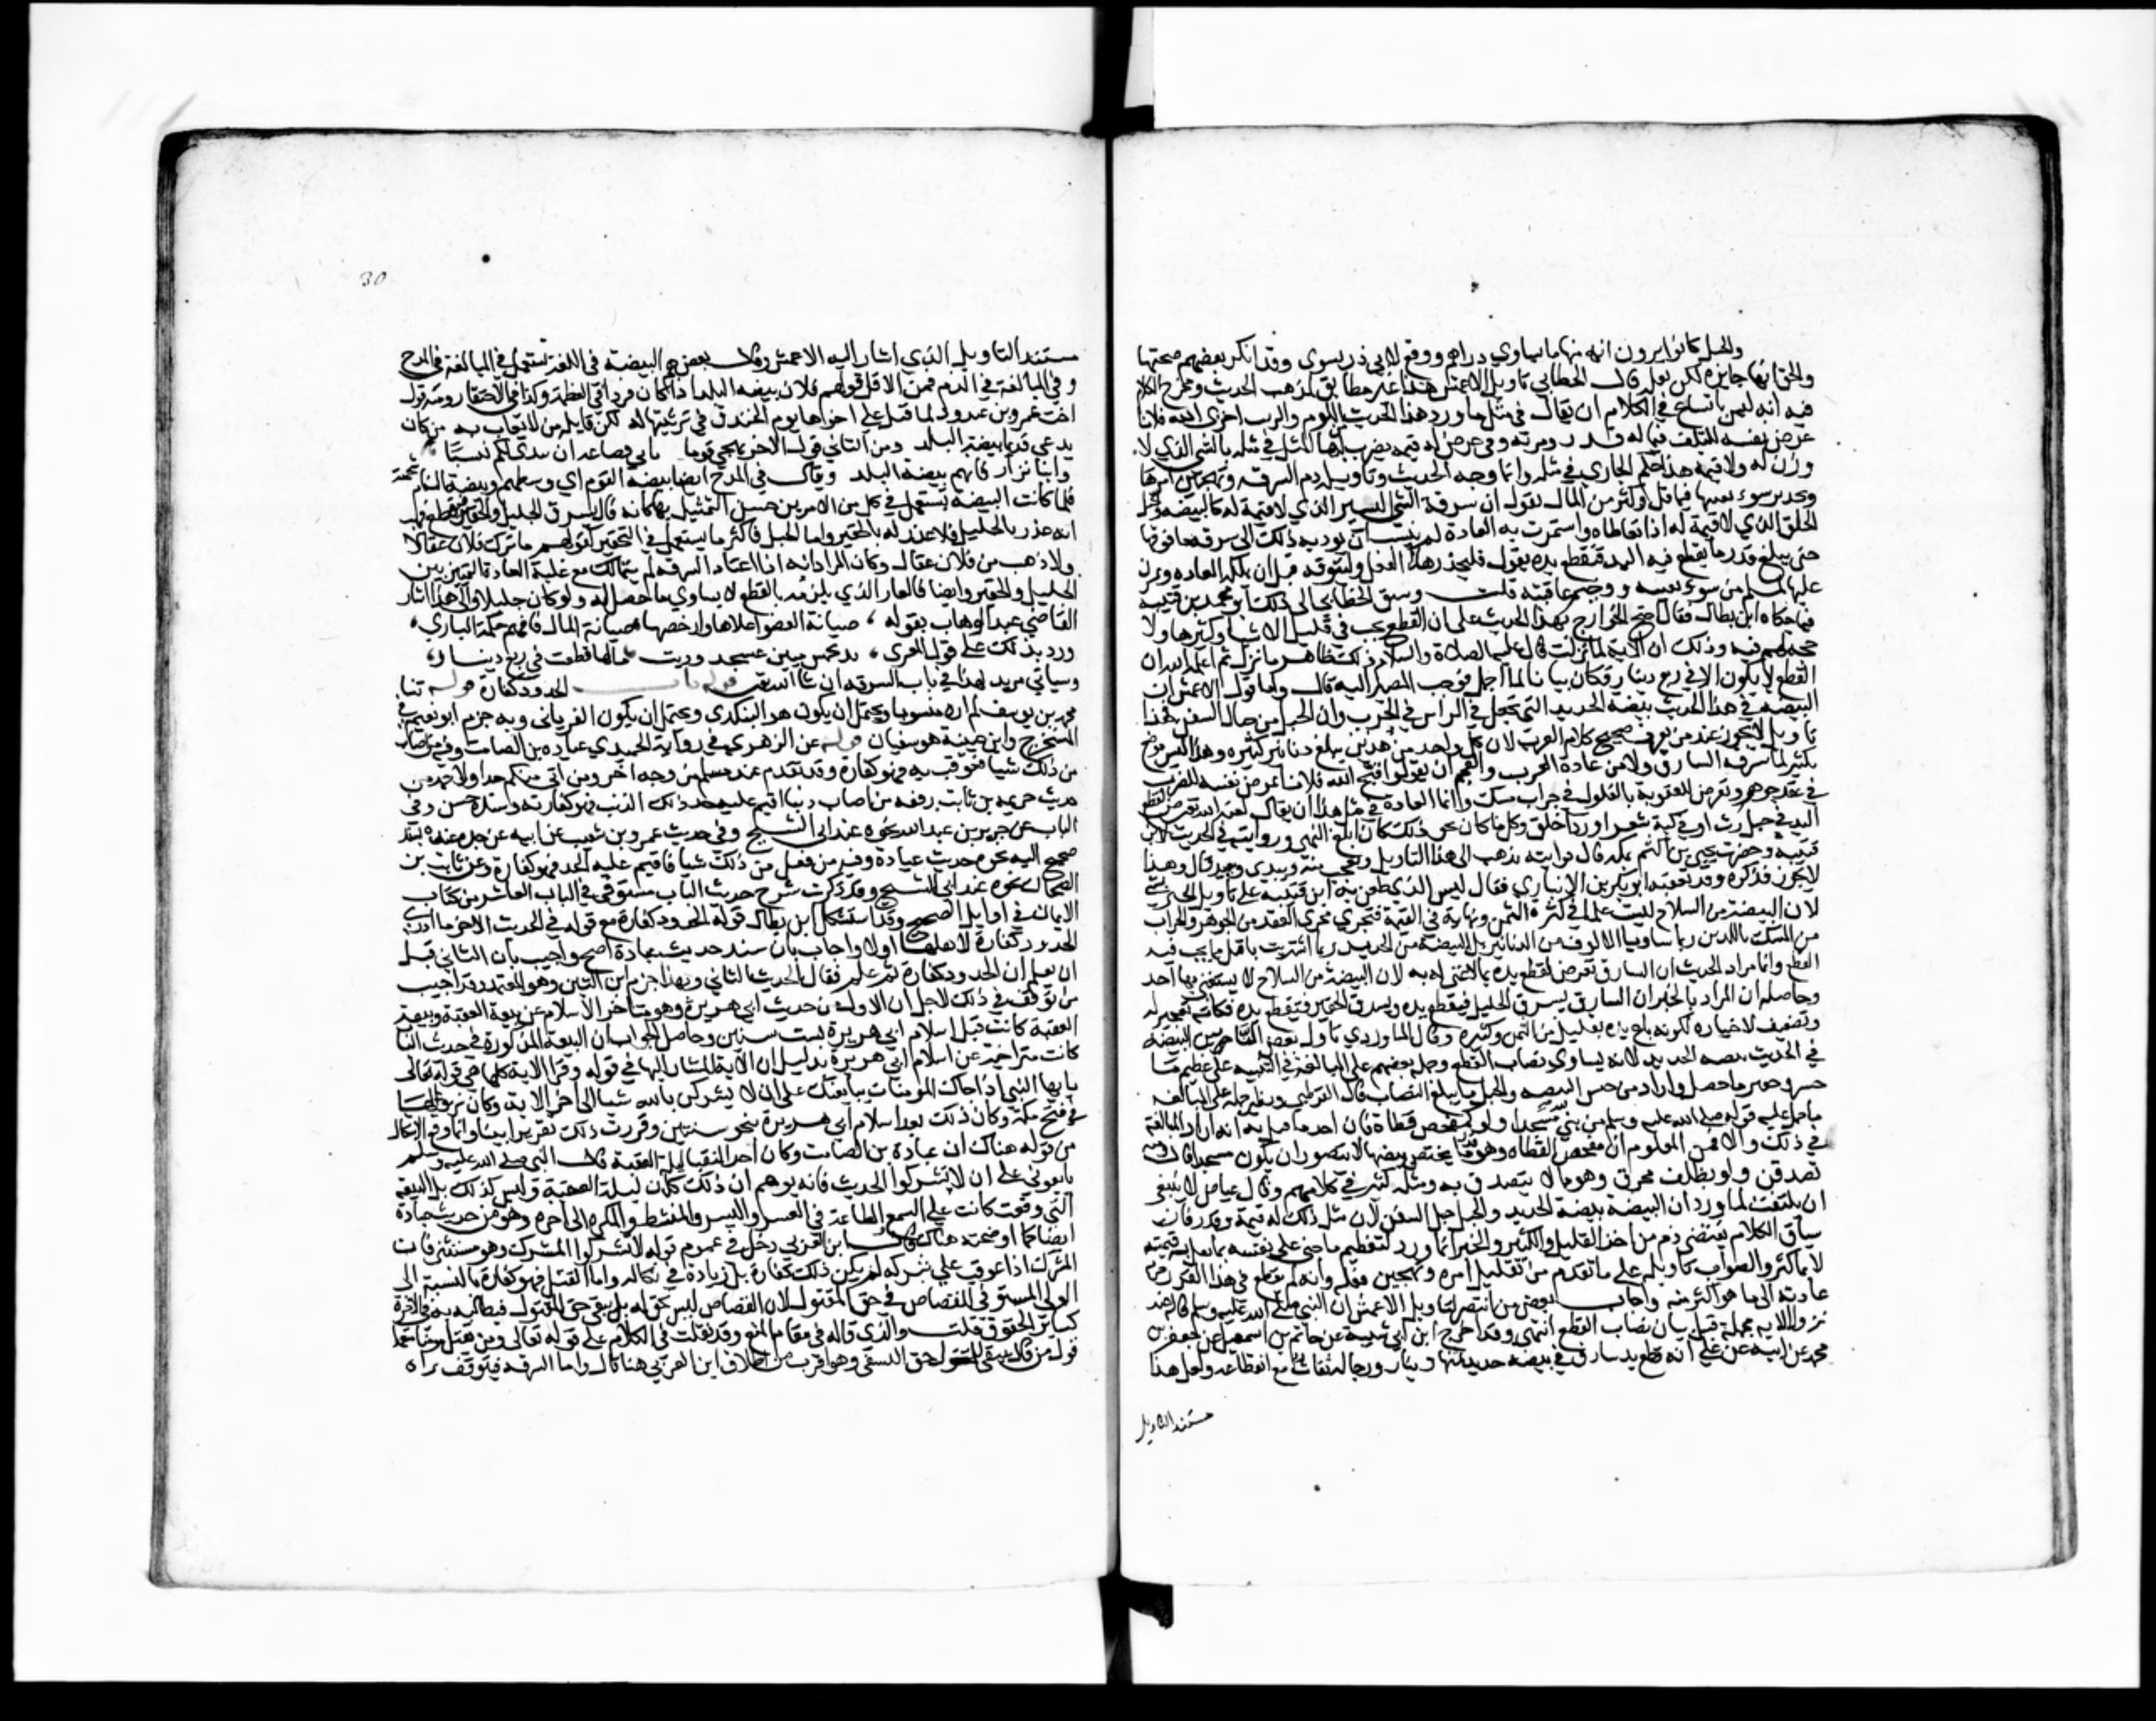 والحبل كانوا يرون انه منها ما يساوي دراهم ووقع لابي ذر يسوى وقد انكر بعضهم صحتها
والحق انها جايزة لكن بقله قال الخطابي تاويل الاعمش هذا غير مطابق لمذهب الحديث ومخرج الكلام
فيه انه ليس بالشايع في الكلام ان يقال في مثل ما ورد هذا الحديث باللوم والترب اخزى الله فلانا
عرض نفسه للتلف فيما له قدر ومزية وفي عرض له قيمة يضرب المثل في مثله بالشي الذي لا
وزن له ولا قيمة هذا حكم الجاري في مثله وانما وجه الحديث وتاويله ذم السرقة وتهجين امرها
وتحذير سوء مغبتها فيما قل وكثر من المال يقول ان سرقة الشي اليسير الذي لا قيمة له كالبيضة والحبل
الخلق الذي لا قيمة له اذا تعاطاه واستمرت به العادة لم ينشب ان يوديه ذلك الى سرقة ما فوقها
حتى يبلغ قدر ما يقطع فيه اليد فتقطع يده يقول فليحذر هذا الفعل وليتوقه قبل ان تملكه العاده ويمرن
عليها ليسلم من سوء مغبته ووخيم عاقبته قلت وسبق الخطابي الى ذلك ابو محمد بن قتيبة
فيما حكاه ابن بطال فقال احتج الخوارج بهذا الحديث على ان القطع يجب في قليل الاشيا وكثيرها ولا
حجة لهم فيه وذلك ان الاية لما نزلت قال عليه الصلاة والسلام ذلك على ظاهر ما نزل ثم اعلمه الله ان
القطع لا يكون الا في ربع دينار فكان بيانا لما اجمل فوجب المصير اليه قال واما قول الاعمش ان
البيضة في هذا الحديث بيضة الحديد التي تجعل في الراس في الحرب وان الحبل من حبال السفن فهذا
تاويل لا يجوز عند من يعرف صحيح كلام العرب لان كل واحد من هذين يبلغ دنانير كثيره وهذا ليس موضع
تكثير لما سرقه السارق ولا من عادة العرب والعجم ان يقولوا قبح الله فلانا عرض نفسه للضرب
في عقد جوهر وتعرض للعقوبة بالغلول في جراب مسك وانما العادة في مثل هذا ان يقال لعنه الله تعرض لقطع
اليد في حبل رث او في كبة شعر او رداء خلق وكل ما كان نحو ذلك كان ابلغ انتهى ورويته في الحديث لابن
قتيبة وحضرت يحيى بن اكثم بمكة قال فرايته يذهب الى هذا التاويل ويعجب به ويبدي ويعيد قال وهذا
لا يجوز فذكره وقد تعقبه ابو بكر بن الانباري فقال ليس الذي طعن به ابن قتيبة على تاويل الخبر بشي
لان البيضة من السلاح ليست علما في كثرة الثمن ونهاية في القيمة فتجري مجرى العقد من الجوهر والجراب
من المسك باللذين ربما ساويا الالوف من الدنانير بل البيضة من الحديد ربما اشتريت باقل مما يجب فيه
القطع وانما مراد الحديث ان السارق تعرض لقطع يده بما لا غنى له به لان البيضة من السلاح لا يستغني بها احد
وحاصله ان المراد بالخبر ان السارق يسرق الجليل فيقطع يده ويسرق الحقير فتقطع يده فكانه تعجيز له
وتضعيف لاختياره لكونه باع يده بقليل من الثمن وكثيره وقال الماوردي تاول بعض الناس البيضة
في الحديث بيضة الحديد لانه يساوي نصاب القطع وحمله بعضهم على المبالغة في التنبيه على عظيم ما
خسر وحقير ما حصل واراد من جنس البيضه والحبل ما يبلغ النصاب قال القرطبي ونظير حمله على المبالغه
ما حمل عليه قوله صلى الله عليه وسلم من بنى مسجدا ولو كمفحص قطاة فان احد ما قيل فيه انه اراد المبالغة
في ذلك والا فمن المعلوم ان مفحص القطاه وهو قدر ما تحتضن بيضها لا يتصور ان يكون مسجدا قال ومنه
تصدقن ولو بظلف محرق وهو ما لا يتصدق به ومثله كثير في كلامهم وقال عياض لا ينبغي
ان يلتفت لما ورد ان البيضة بيضة الحديد والحبل حبل السفن لان مثل ذلك له قيمة وقدر فان
سياق الكلام يقتضي ذم من اخذ القليل لا الكثير والخبر انما ورد لتعظيم ما جنى على نفسه بما تقل به قيمته
لا باكثر والصواب تاويله على ما تقدم من تقليل امره وتهجين فعله وانه لم يقطع في هذا القدر جرته
عادته الى ما هو اكثر منه واجاب بعض من انتصر لتاويل الاعمش ان النبي صلى الله عليه وسلم قاله عند
نزول الاية مجملة قبل بيان نصاب القطع انتهى وقد اخرج ابن ابي شيبة عن حاتم بن اسمعيل عن جعفر بن
محمد عن ابيه عن علي انه قطع يد سارق في بيضة حديد ثمنها ربع دينار ورجاله ثقات مع انقطاعه ولعل هذا
مستند التاويل
30
مستند التاويل الذي اشار اليه الاعمش وقال بعضهم البيضة في اللغة تستعمل في المبالغة في المدح
وفي المبالغة في الذم فمن الاول قولهم فلان بيضة البلد اذا كان فردا في العظمة وكذا في الاحتقار ومنه قول
اخت عمرو بن عبد ود لما قتل علي اخوها يوم الخندق في ترثيتها له لكن قاتله من لا يعاب به من كان
يدعى قديما بيضة البلد ومن الثاني قول الاخر يهجو قوما تابى قضاعة ان تبدي لكم نسبا
وابنا نزار فانتم بيضة البلد ويقال في المدح ايضا بيضة القوم اي وسطهم وبيضة السنام شحمته
فلما كانت البيضة تستعمل في كل من الامرين حسن التمثيل بها كانه قال يسرق الجليل والحقير فيقطع فرب
انه عذر بالجليل فلا عذر له بالحقير واما الحبل فاكثر ما يستعمل في التحقير كقولهم ما ترك فلان عقالا
ولا ذهب من فلان عقال وكان المراد انه اذا اعتاد السرقة لم يتمالك مع غلبة العادة التمييز بين
الجليل والحقير وايضا فالعار الذي يلزمه بالقطع لا يساوي ما حصل له ولو كان جليلا والى هذا اشار
القاضي عبد الوهاب بقوله صيانة العضو اغلاها وارخصها صيانة المال فافهم حكمة الباري
ورد بذلك على قول المعري يد بخمس مئين عسجد وديت ما بالها قطعت في ربع دينار
وسياتي مزيد لهذا في باب السرقة ان شا الله تعالى قوله باب الحدود كفارة قوله ثنا
محمد بن يوسف لم اره منسوبا ويحتمل ان يكون هو البيكندي ويحتمل ان يكون الفريابي وبه جزم ابو نعيم في
المستخرج وابن عيينة هو سفيان قوله عن الزهري في رواية الحميدي عبادة بن الصامت وفيه من اصاب
من ذلك شيا فعوقب به فهو كفارة وقد تقدم عند مسلم من وجه اخر ومن اتى منكم حدا ولاحمد من
حديث خزيمة بن ثابت رفعه من اصاب ذنبا اقيم عليه حد ذلك الذنب فهو كفارته وسنده حسن وفي
الباب عن جرير بن عبد الله نحوه عند ابي الشيخ وفي حديث عمرو بن شعيب عن ابيه عن جده عنده بسند
صحيح اليه نحو حديث عبادة وفيه من فعل من ذلك شيا فاقيم عليه الحد فهو كفارة وعن ثابت بن
الضحاك نحوه عند ابي الشيخ وقد ذكرت شرح حديث الباب مستوفى في الباب العاشر من كتاب
الايمان في اوايل الصحيح وقد استشكل ابن بطال قوله الحدود كفارة مع قوله في الحديث الاخر ما ادري
الحدود كفارة لاهلها اولا واجاب بان سند حديث عبادة اصح واجيب بان الثاني قبل
ان يعلم ان الحدود كفارة ثم علم فقال الحديث الثاني وبهذا جزم ابن التين وهو المعتمد وقد اجيب
من توقف في ذلك لاجل ان الاول من حديث ابي هريرة وهو متاخر الاسلام عن بيعة العقبة وبيعة
العقبة كانت قبل اسلام ابي هريرة بست سنين وحاصل الجواب ان البيعة المذكورة في حديث الباب
كانت متراخية عن اسلام ابي هريرة بدليل ان الاية المشار اليها في قوله وقرا الاية كلها هي قوله تعالى
يا ايها النبي اذا جاك المومنات يبايعنك على ان لا يشركن بالله شيا الى اخر الاية وكان نزولها
في فتح مكة وكان ذلك بعد اسلام ابي هريرة بنحو سنتين وقررت ذلك تقريرا بينا وانما وقع الاشكال
من قوله هناك ان عبادة بن الصامت وكان احد النقبا ليلة العقبة قال ان النبي صلى الله عليه وسلم
بايعوني على ان لا تشركوا الحديث فانه يوهم ان ذلك كان ليلة العقبة وليس كذلك بل البيعة
التي وقعت كانت على السمع والطاعة في العسر واليسر والمنشط والمكره الى اخره وهو من حديث عبادة
ايضا كما اوضحته هناك قال ابن العربي دخل في عموم قوله لا تشركوا المشرك وهو مستثنى فان
المشرك اذا عوقب على شركه لم يكن ذلك كفارة بل زيادة في نكاله واما القتل فهو كفارة بالنسبة الى
الولي المستوفي للقصاص في حق المقتول لان القصاص ليس بحق له بل يبقى حق المقتول فيطالبه به في الاخرة
كساير الحقوق قلت والذي قاله في مقام المنع وقد نقلت في الكلام على قوله تعالى ومن يقتل مومنا متعمدا
قول من قال يبقى للمقتول حق التشفي وهو اقرب من اطلاق ابن العربي هنا قال واما السرقة فيتوقف براه